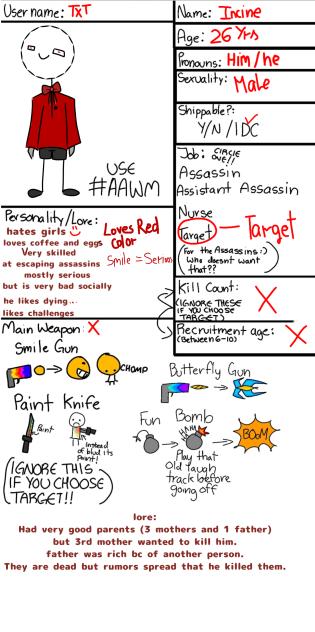 Username: TxT
Name: Irxine
Age: 26 Yrs
Pronouns: Him/he
Sexuality: Male
Shippable?:
Y/N/IDC
Job: CIRCLE ONE!!
Assassin
Assistant Assassin
Nurse
Target — Target
(For the Assassins :)
Who doesn't want
that??
USE
#AAWM
Personality/Lore:
hates girls
loves coffee and eggs
Very skilled
at escaping assassins
mostly serious
but is very bad socially
he likes dying...
likes challenges
Loves Red
color
Smile = Serious
Kill Count:
(IGNORE THESE
IF YOU CHOOSE
TARGET) X
Recruitment age: X
(Between 6-10)
Main Weapon: X
Smile Gun
CHOMP
Butterfly Gun
Paint Knife
Paint
Instead
of blud its
Paint!
Fun Bomb
HAHA
BOOM
Play that
Old laugh
track before
going off
(IGNORE THIS
IF YOU CHOOSE
TARGET!!)
lore:
Had very good parents (3 mothers and 1 father)
but 3rd mother wanted to kill him.
father was rich bc of another person.
They are dead but rumors spread that he killed them.